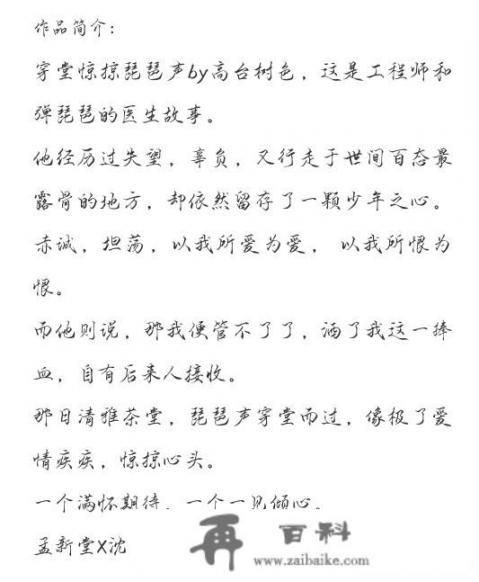 作品简介:
穿堂惊掠琵琶声by高台树色，这是工程师和
弹琵琶的医生故事。
他经历过失望，辜负，又行走于世间百态最
露骨的地方，却依然留存了一颗少年之心。
赤诚，坦荡，以我所爱为爱， 以我所恨为
恨。
而他则说，那我便管不了了，洒了我这一捧
血，自有后来人接收。
那日清雅茶堂，琵琶声穿堂而过，像极了爱
情疾疾，惊掠心头。
一个满怀期待，一个一见倾心。
孟新堂X沈
再百科
www.zaibaike.com